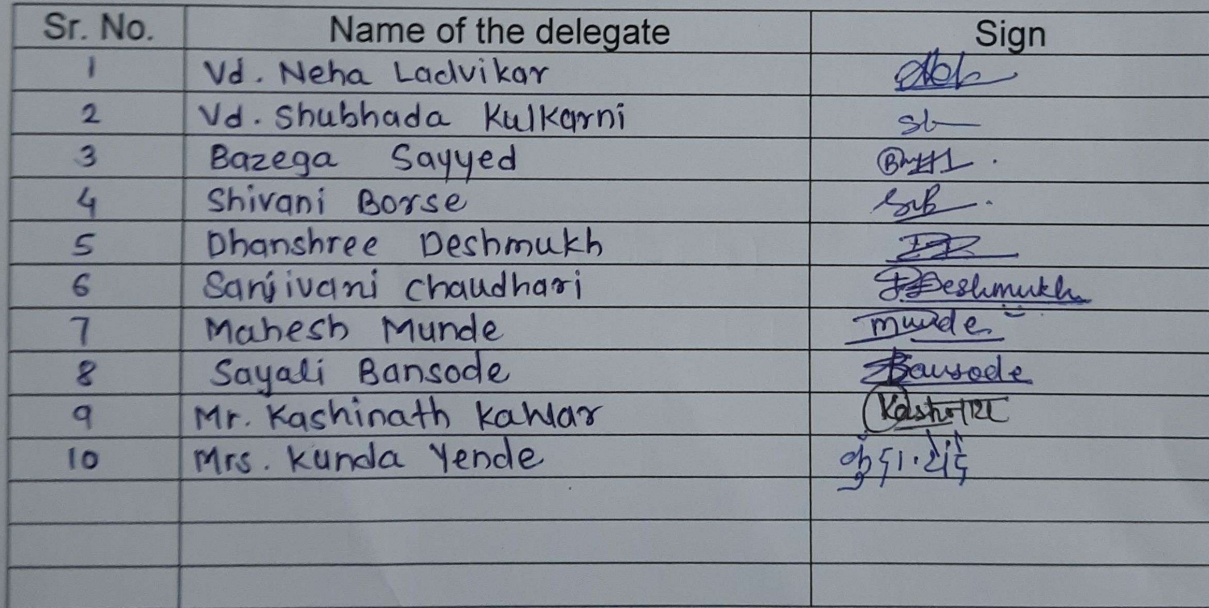 Sr. No. Name of the delegate Sign
1 Vd. Neha Ladvikar
2 Vd. Shubhada Kulkarni
3 Bazega Sayyed
4 Shivani Borse
5 Dhanshree Deshmukh
6 Sanjivani Chaudhari Deshmukh
7 Mahesh Munde munde
8 Sayali Bansode Bansode
9 Mr. Kashinath Kahlar
10 Mrs. Kunda Yende